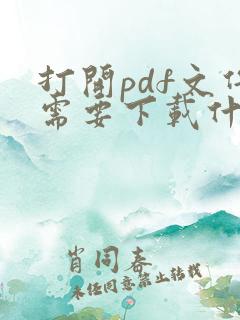 打開pdf文件
需要下載什
肖同春
未经同意禁止转载